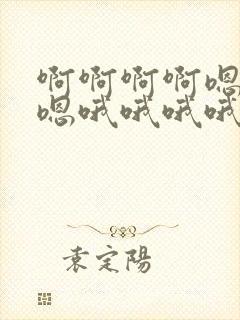 啊啊啊啊嗯
嗯哦哦哦哦
袁定陽